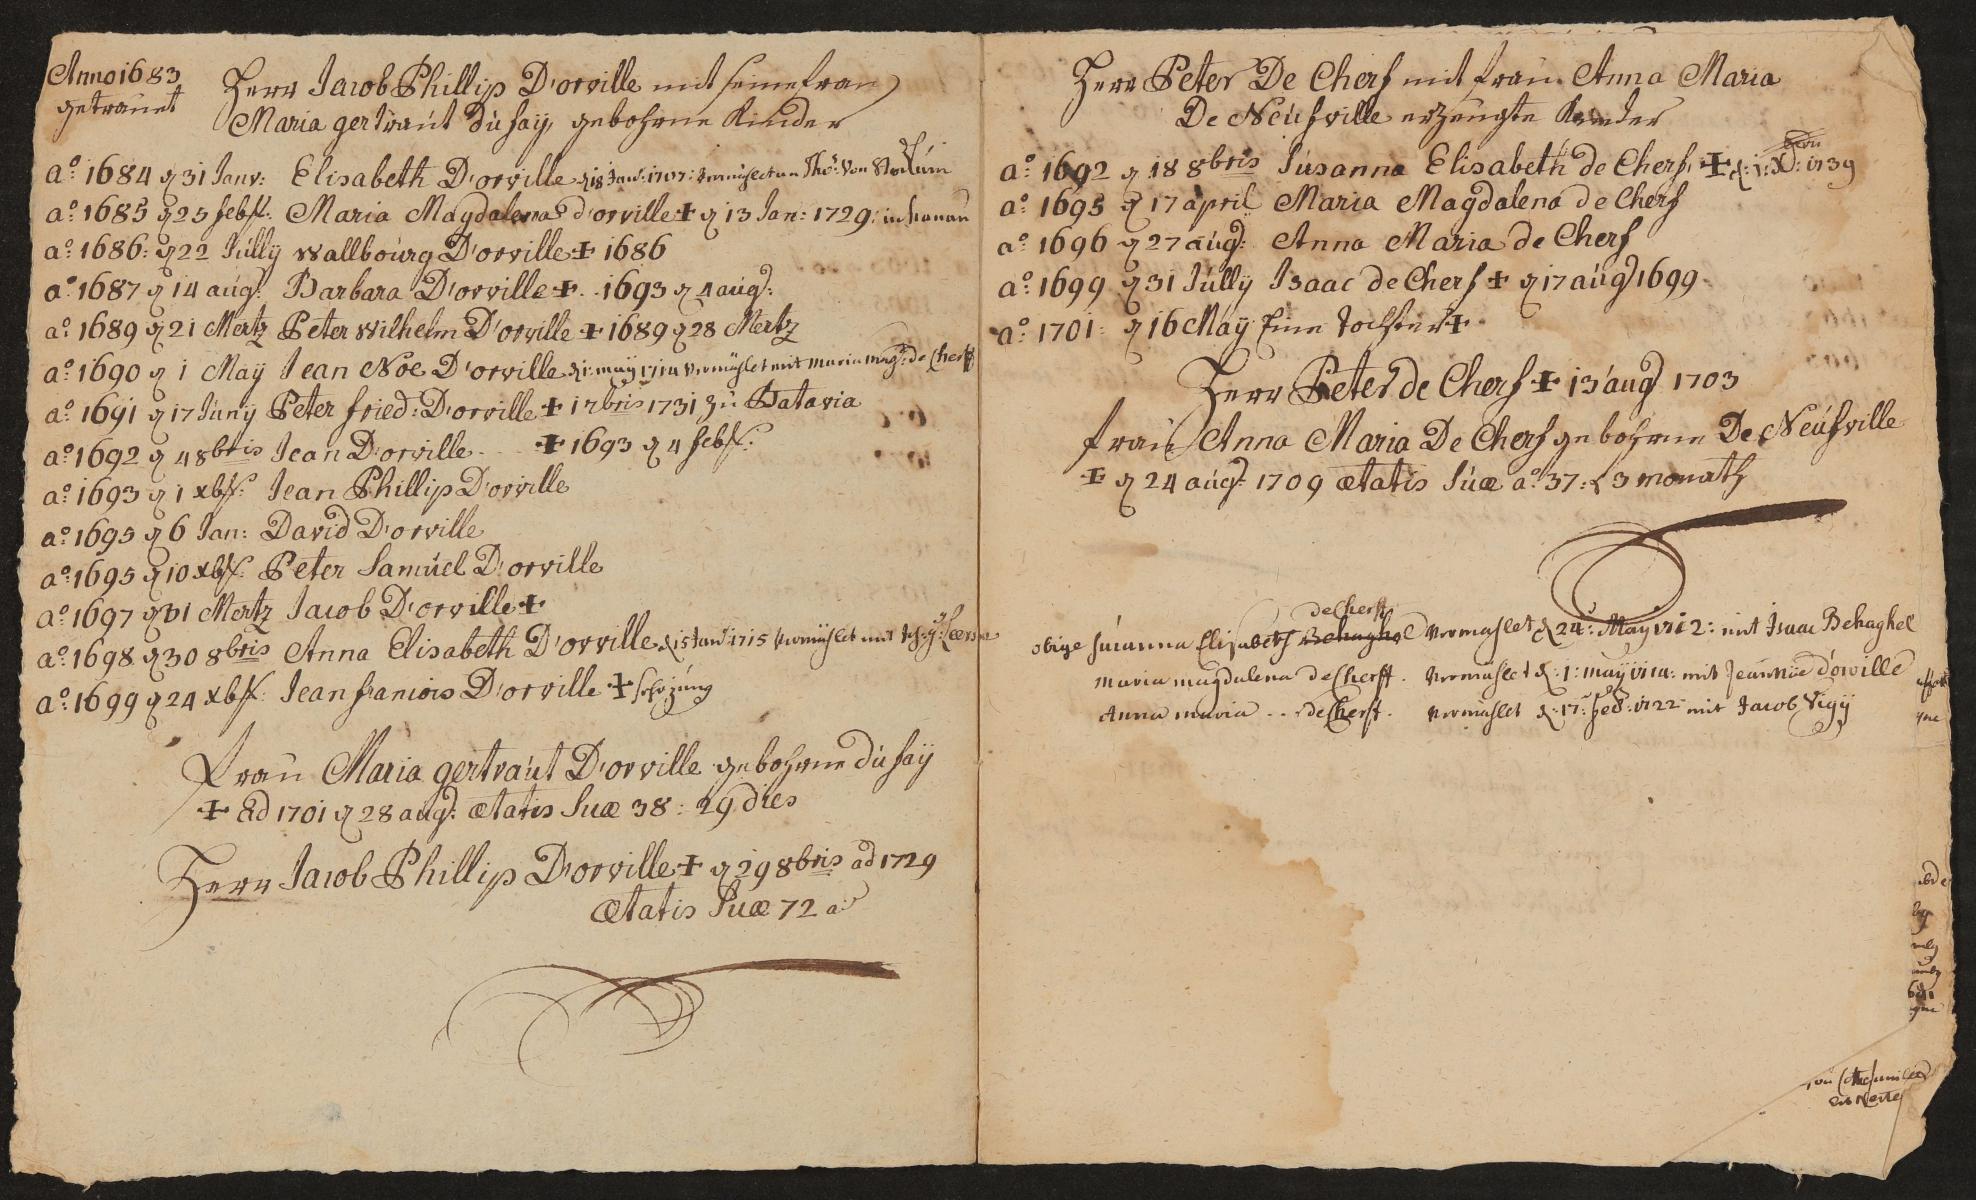 Anno 1683
getrauet
Herr Jacob Phillip D'orville mit seine frau
Maria gertraut Dùfaÿ, gebohrne Kinder
aº 1684 31 Janv: Elisabeth D'orville 18 Jan: 1707: Vermählet an Thº: Von Stockùm
aº 1685 25 febr: Maria Magdalena d'orville + 13 Jan: 1729: in hanau
aº 1686: 22 Jùllÿ Wallboùrg D'orville + 1686
aº 1687 14 aùg: Barbara D'orville + 1693 4 aùg:
aº 1689 21 Mertz Peter Wilhelm D'orville + 1689 28 Mertz
aº 1690 1 Maÿ Jean Noe D'orville 1: maÿ 1714 Vermählet mit Maria Magd: de Cherff
aº 1691 17 Jùnÿ Peter fried: D'orville + 1731 zù Batavia
aº 1692 4 8bris Jean D'orville + 1693 4 febr:
aº 1693 1 xbr: Jean Phillip D'orville
aº 1695 6 Jan: David D'orville
aº 1695 10 xbr: Peter Samùel D'orville
aº 1697 31 Mertz Jacob D'orville +
aº 1698 30 8bris Anna Elisabeth D'orville 15 Jan: 1715 Vermählet mit
aº 1699 24 xbr: Jean francois D'orville +
Frau Maria gertraùt D'orville gebohrne dùfaÿ
+ ad 1701 28 aug: ætatis Suæ 38: 29 dies
Herr Jacob Phillip D'orville + 29 8bris ad 1729
ætatis Suæ 72 a:
Herr Peter De Cherf mit frau Anna Maria
De Neùfville erzeugte Kinder
aº 1692 18 8bris Susanna Elisabeth de Cherf, + 1: X: 1739
aº 1695 17 april Maria Magdalena de Cherf
aº 1696 27 aùg: Anna Maria de Cherf
aº 1699 31 Jùllÿ Isaac de Cherf + 17 aùg 1699
aº 1701: 16 Maÿ Eine Tochter +
Herr Peter de Cherf + 13 aug 1703
frau Anna Maria De Cherf gebohrne De Neùfville
+ 24 aug: 1709 ætatis Suæ aº 37: 3 monath
de Cherff
obige Susanna Elisabeth Behaghel Vermahlet 24: May 1712: mit Isaac Behaghel
Maria Magdalena de Cherff. Vermählet 1: maÿ 1714: mit Jean Nöe d'orville
Anna Maria .. de Cherff. Vermählet 17: feb: 1722 mit Jacob Vigÿ